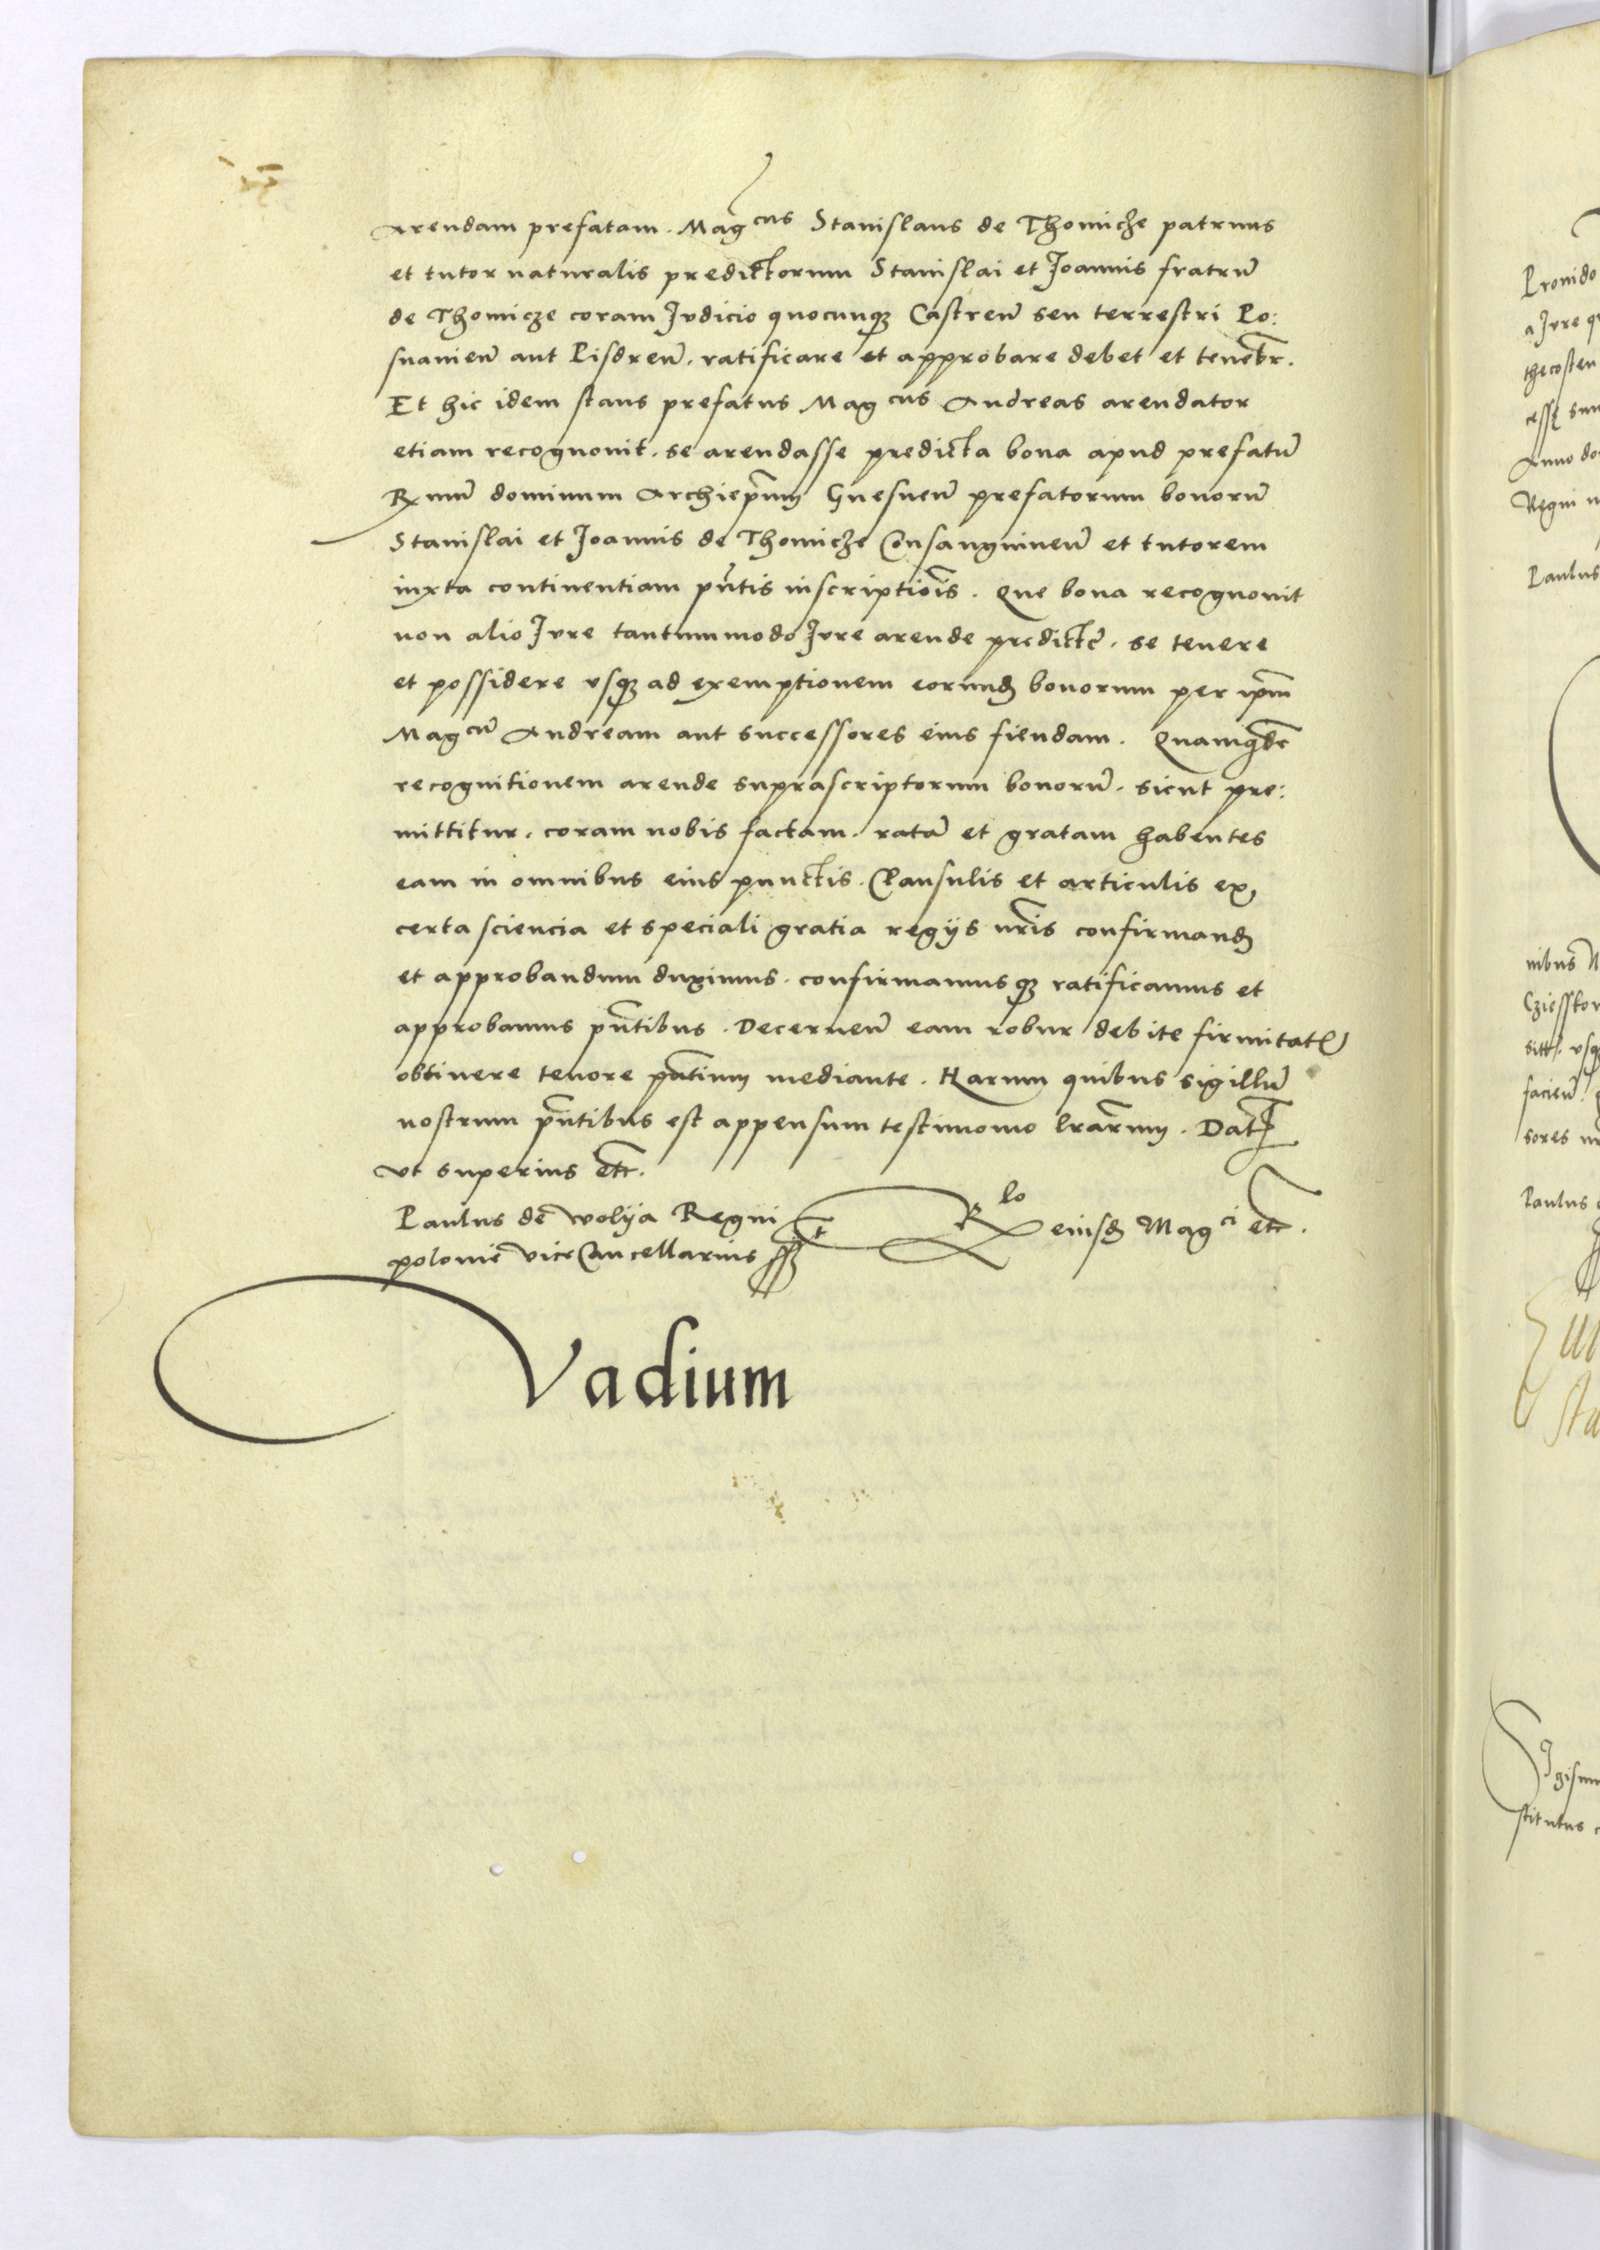 Arendam prefatam. Mag̃cus Stanislaus de Thomicze patruus
et tutor naturalis predictorum Stanislai et Joannis fratrũ
de Thomicze coram Judicio quocunqꝫ Castreñ seu terrestri Po:
snanieñ aut Pisdreñ. ratificare et approbare debet et teneb̃r.
Et hic idem stans prefatus Magcus Andreas arendator
etiam recognouit. se arendasse predicta bona apud prefatũ
Rx̃mũ dominum Archiep̃um Gnesneñ prefatorum bonorũ
Stanislai et Joannis de Thomicze Consanguineũ et tutorem
iuxta continentiam pñtis inscriptiõis. Que bona recognouit
non alio Jure tantummodo Jure arende predicte. se tenere
et possidere vsqꝫ ad exemptionem eorund bonorum per ip̃m
Magcũ Andream aut successores eius fiendam. Quamqd̃e
recognitionem arende suprascriptorum bonorũ. sicut pre:
mittitur. coram nobis factam. ratã et gratam habentes
eam in omnibus eius punctis. Clausulis et articulis ex
certa sciencia et speciali gratia regijs nr̃is confirmand
et approbandum duximus. confirmamusqꝫ ratificamus et
approbamus pñtibus. Decerneñ eam robur debite firmitatis
obtinere tenore pñtium mediante. Harum quibus sigillũ
nostrum pñtibus est appensum testimonio lrãrum. Dat
vt superius etc̃.
Paulus de Wolya Regni
polonie Vicecancellarius sst
Rlo eiusd Magci etc̃.
Vadium
Prouido
a Jure q
thecosten
Anno do
Regni n
Paulus
nibus
sitt. vsq
facieñ
sores
Paulus
Sta
Sigism
stitutus